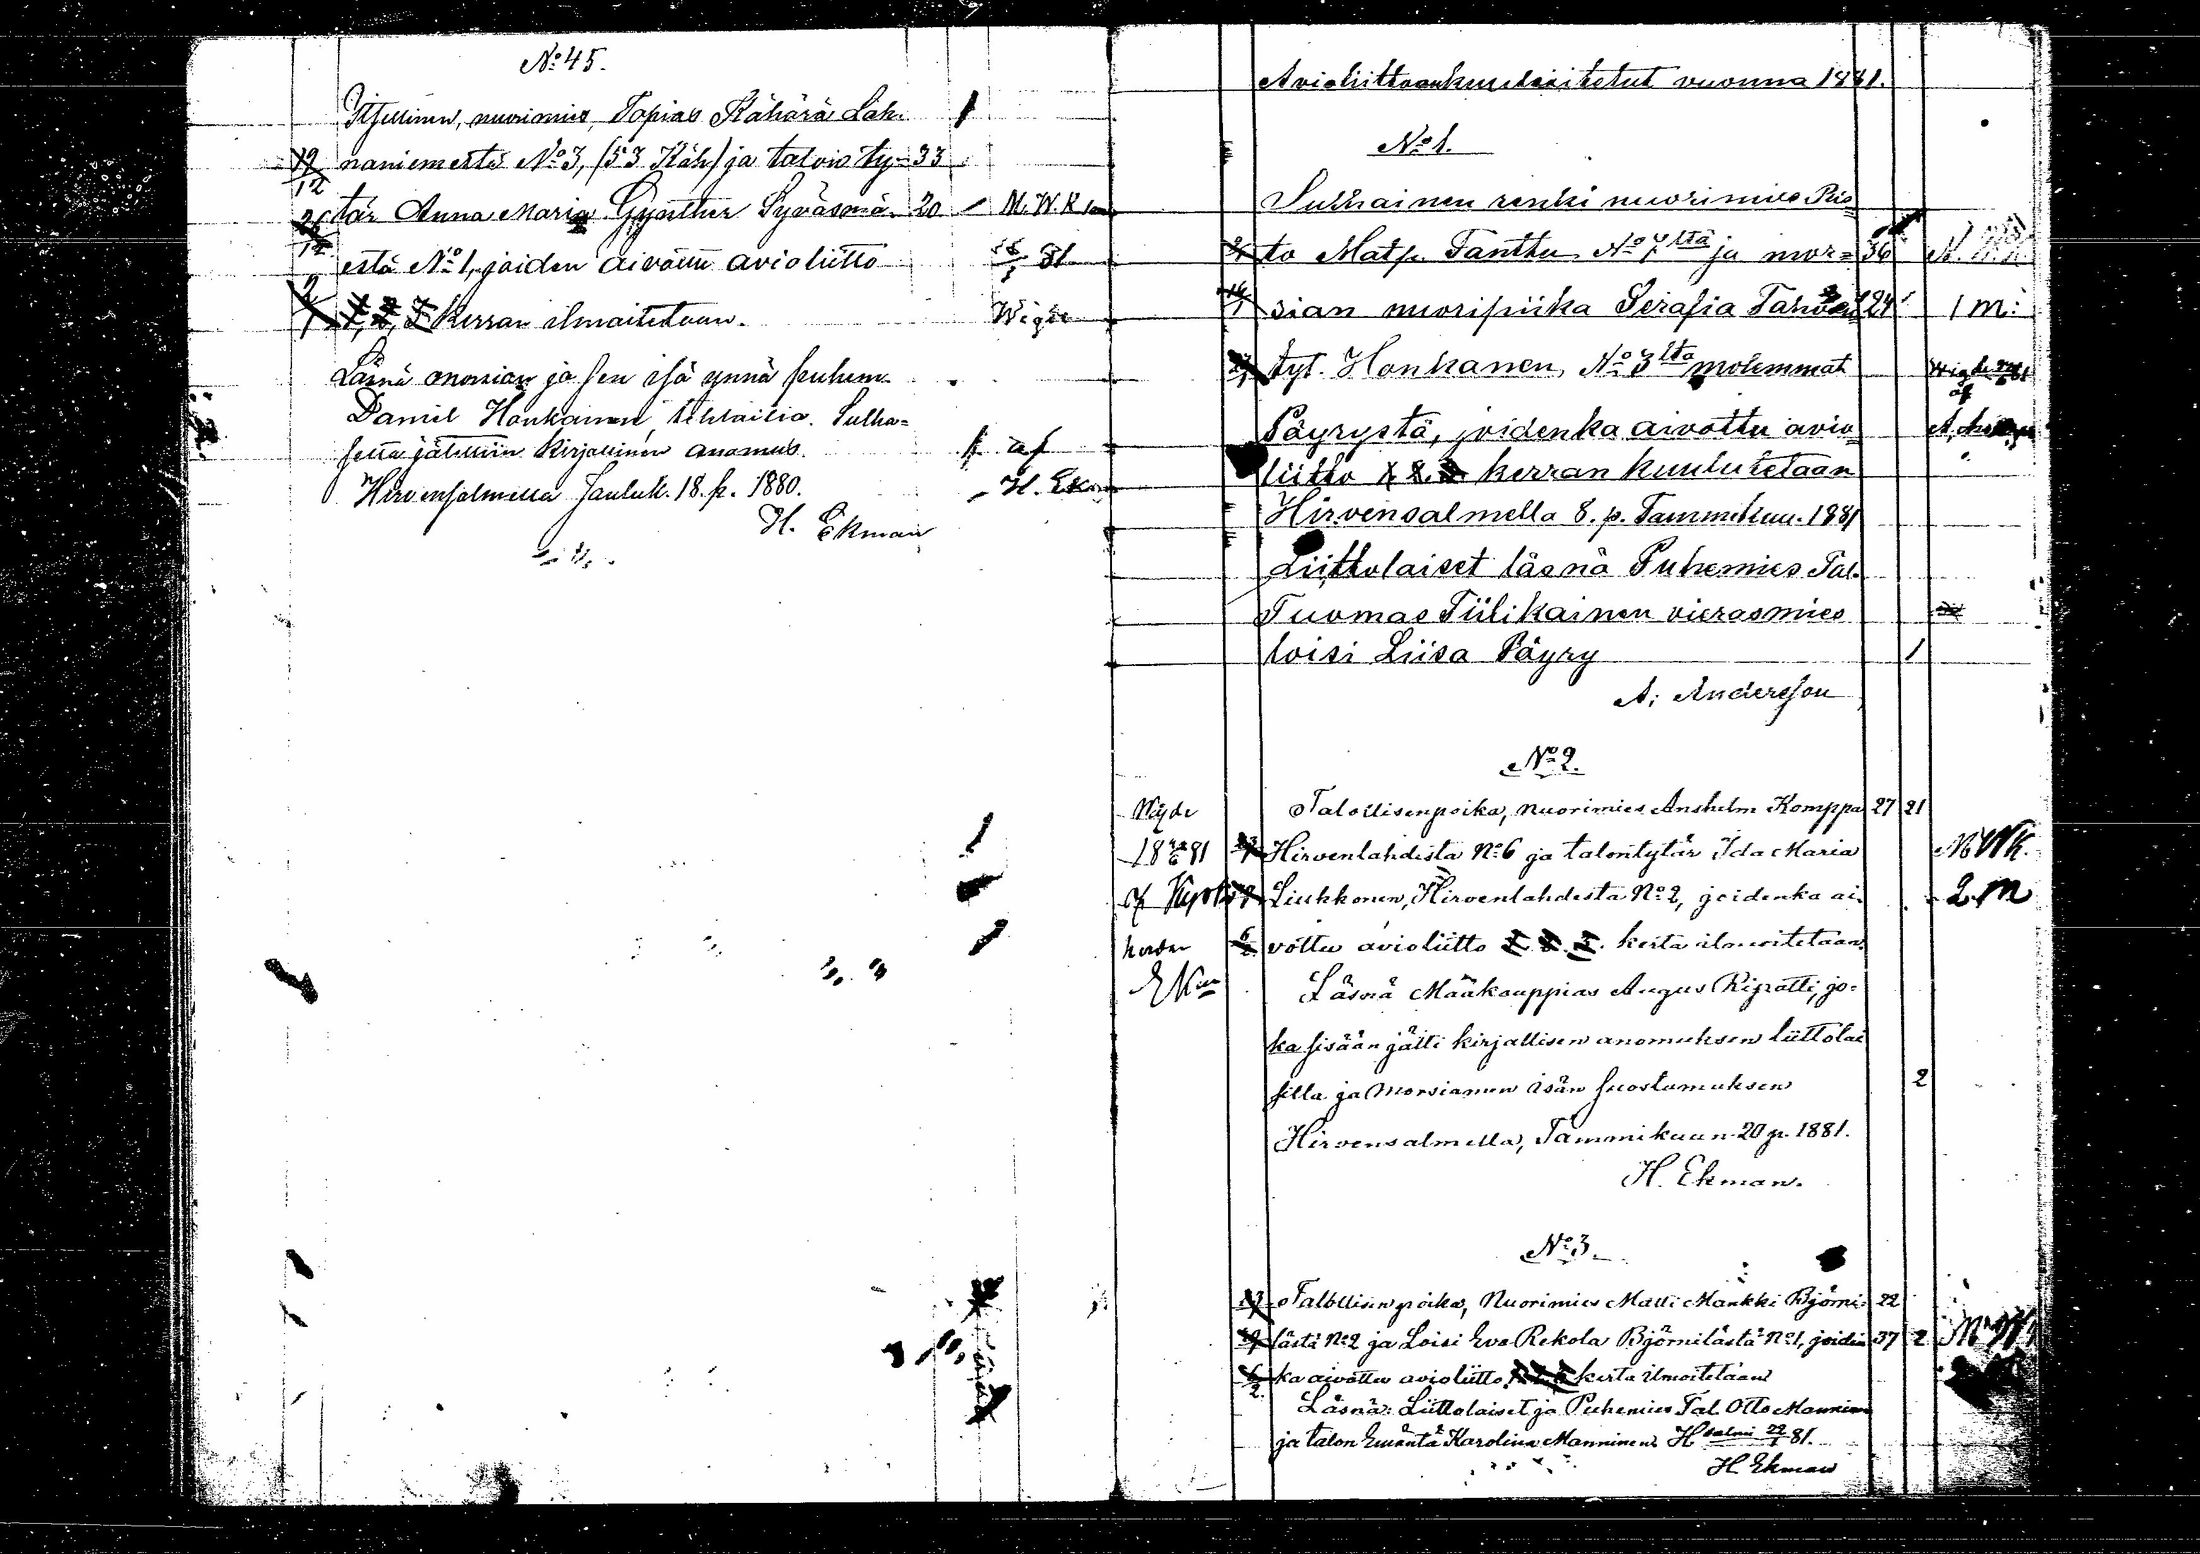 No 45.
Itsellinen, nuorimies, Topias Kähärä Läh-
19/12 naniemestä No 3, (53 Käh) ja talois ty- 33
26/12 tär Anna Maria Gynther Syväsmä- 20 M. W. K
estä No 1, joiden aivottu avioliitto 81
2/1 1, 2, 3 kerran ilmoitetaan. Wigde
Läsnä morsian ja sen isä ynnä puhem.
Daniel Honkanen, Sulha-
selta jätettiin kirjallinen anomus. af
Hirvensalmella Jouluk. 18. p. 1880. H. Ekm
H. Ekman
Avioliittoonkuulutetut vuonna 1881.
No 1.
Sulhainen renki nuorimies Ris-
to Matp. Tanttu No 7ltä ja mor- 36
sian nuoripiika Serafia 24 1 m:
tyt. Honkanen, No 3lta molemmat
Päyrystä, joidenka aivottu avio-
liitto 1. 2. 3. kerran kuulutetaan
Hirvensalmella 8. p. Tammikuu. 1881
Liittolaiset läsnä Puhemies Tal.
Tuomas Tiilikainen vierasmies
loisi Liisa Päyry 1
A. Andersson
No 2.
Wigde Talollisenpoika, nuorimies Anshelm Komppa 27 21
18 81 23/1 Hirvenlahdista No 6 ja talontytär Ida Maria M W K.
af Liukkonen, Hirvenlahdesta No 2, joidenka ai- 2 m
6/2 vottu avioliitto 1. 2. 3. kerta ilmoitetaan.
Ekm Läsnä Maakauppias Augus Ripatti, jo-
ka sisään jätti kirjallisen anomuksen liittolai
silla ja morsiamen isän suostumuksen 2
Hirvensalmella, Tammikuun 20 p. 1881.
H. Ekman.
No 3
23/1 Talollisenpoika, Nuorimies Matti Mankki Björni- 22
lästä No 2 ja Loisi Eva Rekola Björnilästä No 1, joiden 37 2
6/2 ka aivottu avioliitto 1. 2. 3. kerta ilmoitetaan
Läsnä: Liittolaiset ja Puhemies Tal. Otto Manninen
ja talon Emäntä Karolina Manninen. H salmi 22/1 81.
H. Ekman